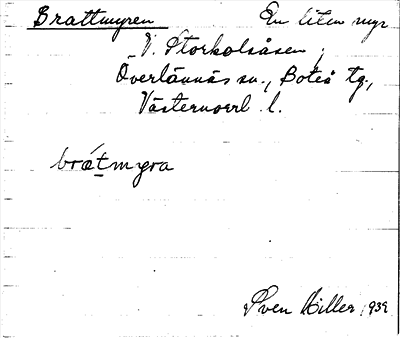 Brattmyren En liten myr
V. Storkolsåsen,
Överlännäs sn., Boteå tg.,
Västernorrl. l.
brátmyra
Sven Hiller, 1939